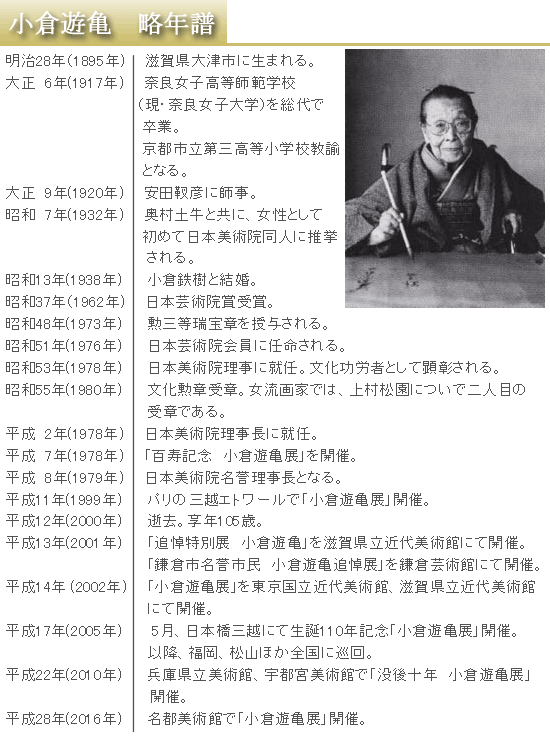 小倉遊亀　略年譜
明治28年(1895年)　滋賀県大津市に生まれる。
大正 6年(1917年)　奈良女子高等師範学校
(現・奈良女子大学)を総代で
卒業。
京都市立第三高等小学校教諭
となる。
大正 9年(1920年)　安田靫彦に師事。
昭和 7年(1932年)　奥村土牛と共に、女性として
初めて日本美術院同人に推挙
される。
昭和13年(1938年)　小倉鉄樹と結婚。
昭和37年(1962年)　日本芸術院賞受賞。
昭和48年(1973年)　勲三等瑞宝章を授与される。
昭和51年(1976年)　日本芸術院会員に任命される。
昭和53年(1978年)　日本美術院理事に就任。文化功労者として顕彰される。
昭和55年(1980年)　文化勲章受章。女流画家では、上村松園についで二人目の
受章である。
平成 2年(1978年)　日本美術院理事長に就任。
平成 7年(1978年)　「百寿記念　小倉遊亀展」を開催。
平成 8年(1979年)　日本美術院名誉理事長となる。
平成11年(1999年)　パリの三越エトワールで「小倉遊亀展」開催。
平成12年(2000年)　逝去。享年105歳。
平成13年(2001年)　「追悼特別展　小倉遊亀」を滋賀県立近代美術館にて開催。
「鎌倉市名誉市民　小倉遊亀追悼展」を鎌倉芸術館にて開催。
平成14年 (2002年)　「小倉遊亀展」を東京国立近代美術館、滋賀県立近代美術館
にて開催。
平成17年(2005年)　5月、日本橋三越にて生誕110年記念「小倉遊亀展」開催。
以降、福岡、松山ほか全国に巡回。
平成22年(2010年)　兵庫県立美術館、宇都宮美術館で「没後十年　小倉遊亀展」
開催。
平成28年(2016年)　名都美術館で「小倉遊亀展」開催。